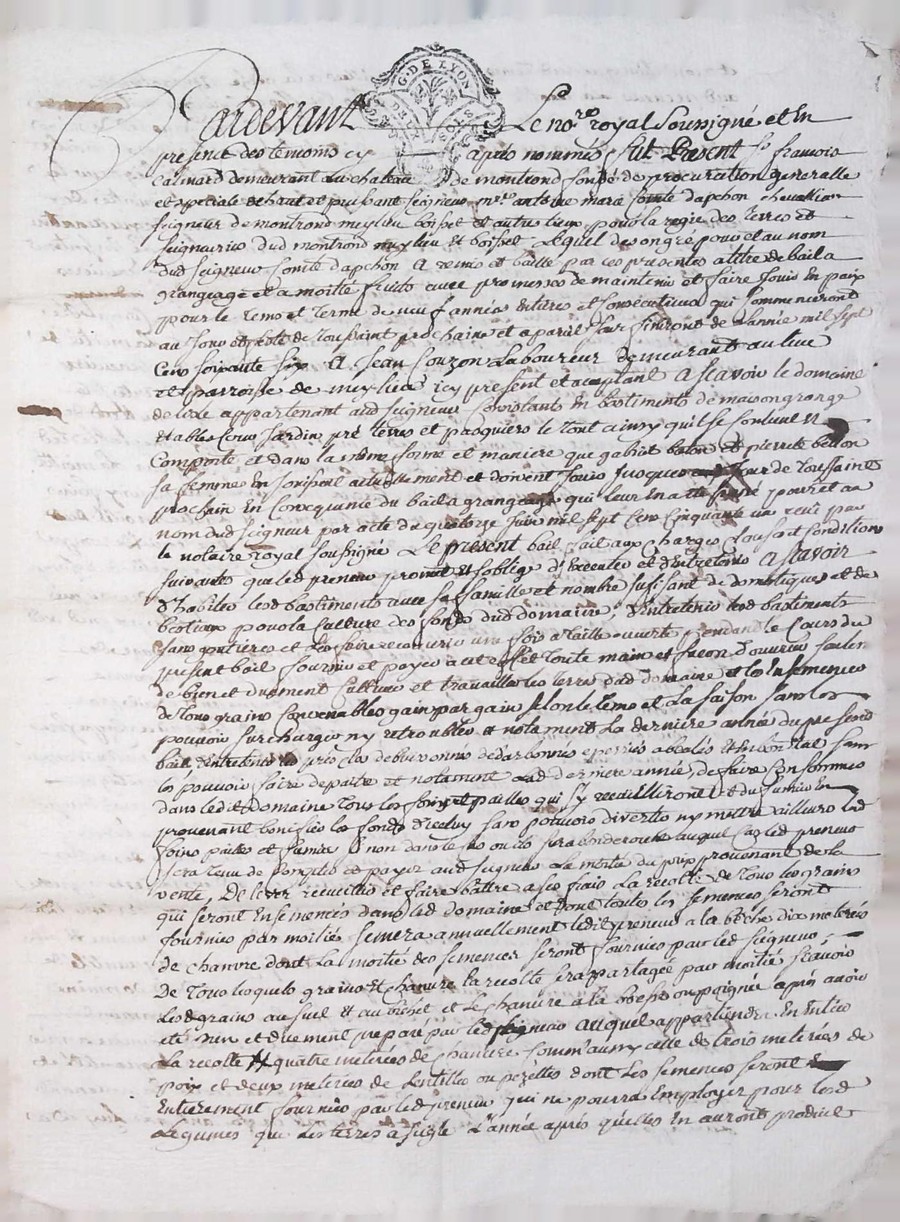 G. DE LYON
DEUX SOLS
Pardevant Le no.re royal soussigné et En
presence des temoins cy apres nommés, fut Present s.r francois
Calinard demeurant au chateau de montrond fondé de procuration generalle
et speciale de haut et puissant seigneur m.re antoine marie comte dapchon chevallier
seigneur de montrond meylieu boisset et autre lieux pour la regie des terres et
seigneuries dud montrond meylieu et boisset Lequel de son gré pour et au nom
dud seigneur comte dapchon A remis et baillé par ces presentes a titre de bail a
grangeage et a moitié fruits avec promesse de maintenir et faire jouir En paix
pour le tems et terme de neuf années Entieres et consecutives qui commenceront
au jour et fete de toussaint prochaine et a pareil jour finiront de L'année mil sept
Cens soixante six A Jean Couzon Laboureur demeurant au lieu
et parroisse de meylieu icy present et acceptant Ascavoir le domaine
de appartenant aud seigneur Consistant En bastiments de maison grange
Etables Cour Jardin pré terres et paquiers le tout ainsy qu'il se contient et
Comporte et dans la meme forme et maniere que gabriel baton et pierrette
sa femme En jouissent actuellement et doivent jouir jusques au jour de Toussaint
prochain En Consequence du bail a grangeage qui leur En a été passé pour et au
nom dud seigneur par acte du quatorze juin mil sept Cens Cinquante un receu par
le notaire royal soussigné Le present bail fait aux Charges Clauses et Conditions
suivantes que led preneur promet et s'oblige d'Executer et d'Entretenir Ascavoir
d'habiter lesd bastiments avec sa famille et nombre sufisant de domestiques et de
bestiaux pour la Culture des fonds dud domaine, d'Entretenir lesd bastiments
sans goutieres et les faire recouvrir une fois a taille ouverte pendant le Cours du
present bail fournir et payer a cet effet toute main et facon d'ouvrier
de bien et duement Cultiver et travailler les terres dud domaine et les Ensemencer
de tous grains Convenables gain par gain selon le tems et La saison sans les
pouvoir surcharger ny retroubler et notament La derniere année du present
bail d'entretenir les prés clos de buissonnés dedarbonnés epierrés et En bon état sans
les pouvoir faire depaitre et notament lad derniere année, de faire Consommer
dans ledit domaine Tous les foins et pailles qui s'y receuilliront et du fumier En
provenant bonifier les fonds d'iceluy sans pouvoir divertir ny mettre ailleurs lesd
foins pailles et fumier si non dans le cas ou ils seroit auquel Cas led preneur
sera tenu de Compter et payer aud seigneur La moitié du prix provenant de la
vente, De lever receuillir et faire battre a ses frais La recolte de tous les grains
qui seront Ensemencés dans led domaine et dont toutes les semences seront
fournies par moitié, semera annuellement ledit preneur a la beche dix meterés
de chanvre dont La moitié des semences seront fournies par led seigneur,
De Tous lesquels grains et chanvre la recolte sera partagée par moitié scavoir
Lesd grains au sueil et au bichet et le chanvre a la bresse ou poignée apres avoir
eté bien et duement preparé par led preneur auquel appartiendra En Entier
La recolte de quatre meterées de chanvre Comm'aussy celle de trois meterées de
poix et deux meterées de Lentilles ou pezettes dont Les semences seront
Entierement fournies par led preneur qui ne pourra Employer pour lesd
Legumes que Les terres a seigle L'année apres qu'elles En auront produit